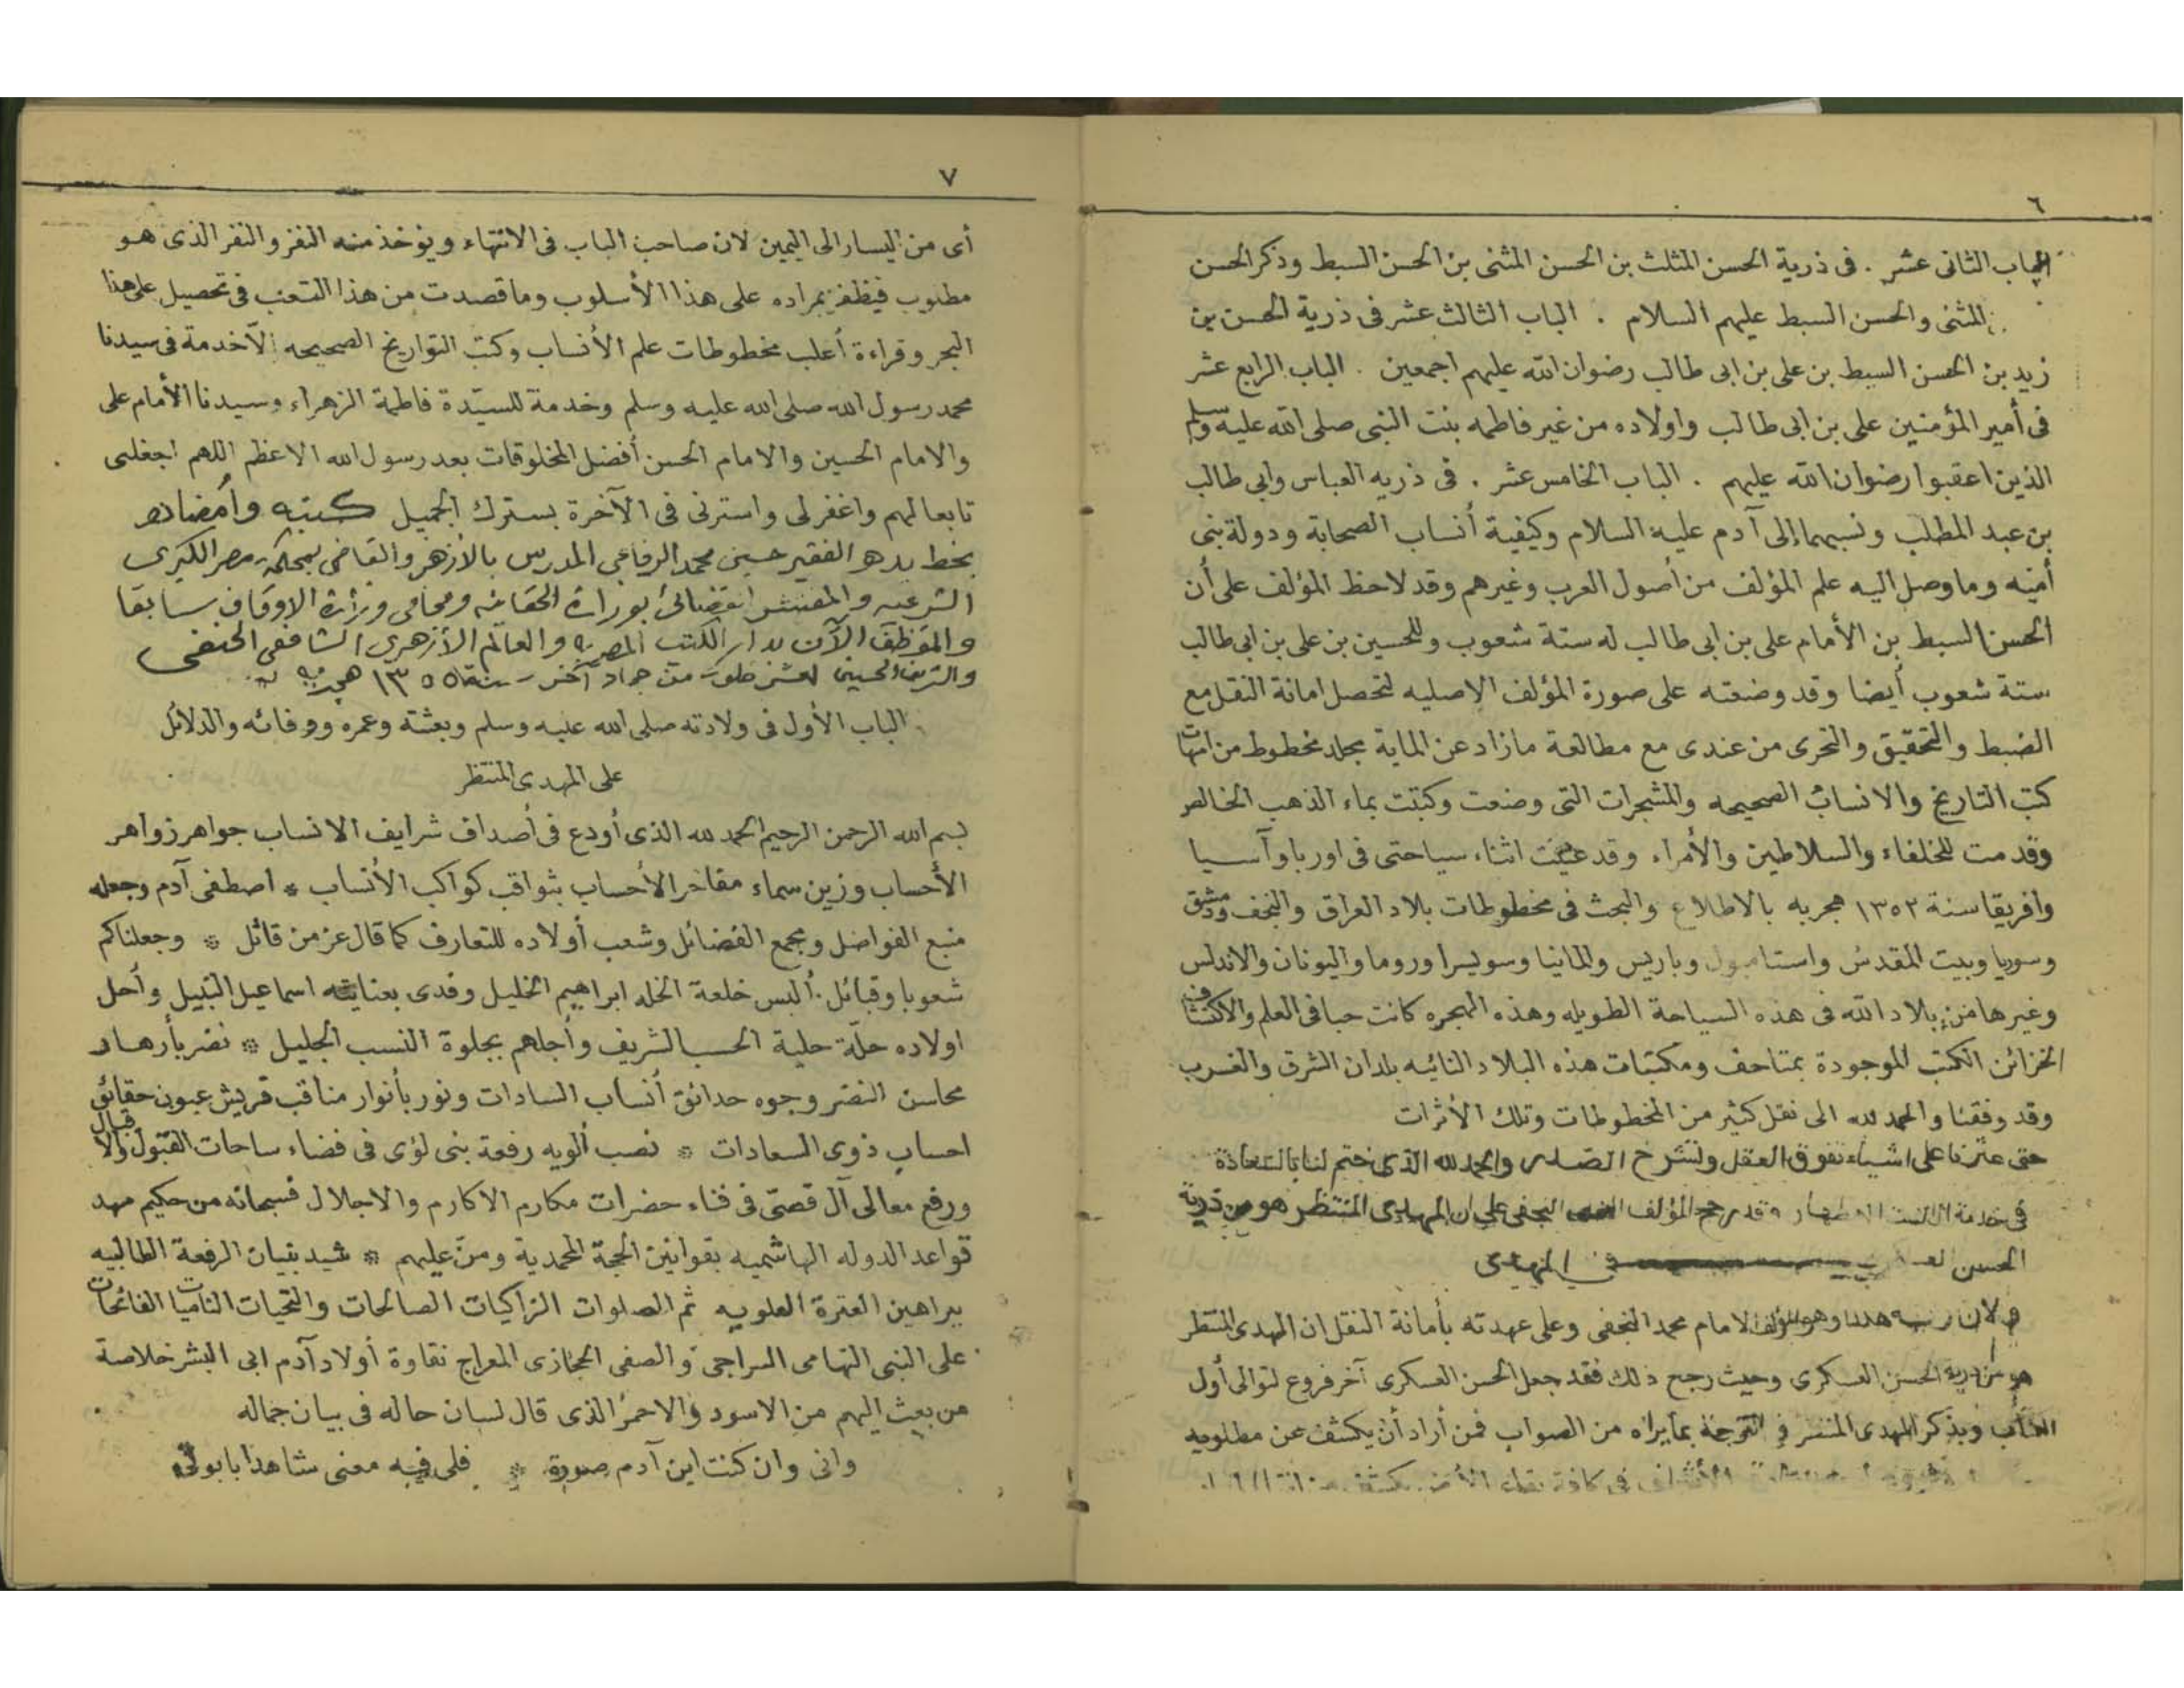 ٦
الباب الثانى عشر . فى ذرية الحسن المثلث بن الحسن المثنى بن الحسن السبط وذكر الحسن
المثنى والحسن السبط عليهم السلام . الباب الثالث عشر فى ذرية الحسن بن
زيد بن الحسن السبط بن على بن ابى طالب رضوان الله عليهم اجمعين . الباب الرابع عشر
فى أمير المؤمنين على بن ابى طالب واولاده من غير فاطمه بنت النبى صلى الله عليه وسلم
الذين اعقبوا رضوان الله عليهم . الباب الخامس عشر . فى ذريه العباس وابى طالب
بن عبد المطلب ونسبهما إلى آدم عليه السلام وكيفية أنساب الصحابة ودولة بنى
أميه وما وصل اليه علم المؤلف من أصول العرب وغيرهم وقد لاحظ المؤلف على أن
الحسن السبط بن الأمام على بن ابى طالب له ستة شعوب وللحسين بن على بن ابى طالب
ستة شعوب أيضا وقد وضعته على صورة المؤلف الاصليه لتحصل امانة النقل مع
الضبط والتحقيق والتحرى من عندى مع مطالعة مازاد عن الماية مجلد مخطوط من امهات
كتب التاريخ والانساب الصحيحه والمشجرات التى وضعت وكتبت بماء الذهب الخالص
وقدمت للخلفاء والسلاطين والأمراء وقد عنيت اثناء سياحتى فى اوربا وآسيا
وافريقا سنة ١٣٥٢ هجريه بالاطلاع والبحث فى مخطوطات بلاد العراق والنجف ودمشق
وسوريا وبيت المقدس واستامبول وباريس والمانيا وسويسرا وروما واليونان والاندلس
وغيرها من بلاد الله فى هذه السياحة الطويله وهذه الهجره كانت حبا فى العلم والاكتشاف
لخزائن الكتب الموجودة بمتاحف ومكتبات هذه البلاد النائيه بلدان الشرق والغرب
وقد وفقنا والحمد لله الى نقل كثير من المخطوطات وتلك الأثرات
حتى عثرنا على اشياء تفوق العقل وتشرح الصدر والحمد لله الذى ختم لنا بالسعادة
فى خدمة ال البيت الاطهار وقد رجح المؤلف النجفى على ان المهدى المنتظر هو من ذرية
الحسن المهدى
وهو المؤلف الامام محمد النجفى وعلى عهدته بأمانة النقل ان المهدى المنتظر
هو من ذرية الحسن العسكرى وحيث رجح ذلك فقد جعل الحسن العسكرى آخر فروع لتوالى أول
الكتاب وبذكر المهدى المنتظر فى الترجمة بما يراه من الصواب فمن أراد أن يكشف عن مطلوبه
الأشراف فى كافة بقاع الأرض يكشف من
٧
أى من اليسار الى اليمين لان صاحب الباب فى الانتهاء ويؤخذ منه النفر والنفر الذى هو
مطلوب فيظفر بمراده على هذا الأسلوب وما قصدت من هذا التعب فى تحصيل على هذا
البحر وقراءة أغلب مخطوطات علم الأنساب وكتب التواريخ الصحيحه إلاّ خدمة فى سيدنا
محمد رسول الله صلى الله عليه وسلم وخدمة للسيّدة فاطمة الزهراء وسيدنا الأمام على
والامام الحسين والامام الحسن أفضل المخلوقات بعد رسول الله الاعظم اللهم اجعلنى
تابعا لهم واغفر لى واسترنى فى الآخرة بسترك الجميل كتبه وأمضاه
بخط يده الفقير حسين محمد الرفاعى المدرس بالأزهر والقاضى بمحكمة مصر الكبرى
الشرعيه والمفتش القضائى بوزارة الحقانيه ومحامى وزارة الاوقاف سابقا
والموظف الآن بدار الكتب المصريه والعالم الأزهرى الشافعى الحنفى
والشريف الحسينى لعشر خلون من جماد آخر سنة ١٣٥٥ هجريه
الباب الأول فى ولادته صلى الله عليه وسلم وبعثته وعمره ووفاته والدلائل
على المهدى المنتظر
بسم الله الرحمن الرحيم الحمد لله الذى أودع فى أصداف شرايف الانساب جواهر زواهر
الأحساب وزين سماء مفاخر الأحساب بثواقب كواكب الأنساب * اصطفى آدم وجعله
منبع الفواضل ومجمع الفضائل وشعب أولاده للتعارف كما قال عز من قائل * وجعلناكم
شعوبا وقبائل . ألبس خلعة الخله ابراهيم الخليل وفدى بعنايته اسماعيل النبيل وأحل
اولاده حلّة حلية الحسب الشريف وأجلهم بجلوة النسب الجليل * نضر بأزهار
محاسن النضر وجوه حدائق أنساب السادات ونور بأنوار مناقب قريش عيون حقائق
احساب ذوى السعادات * نصب ألويه رفعة بنى لؤى فى فضاء ساحات القبول والاقبال
ورفع معالى آل قصىّ فى فناء حضرات مكارم الاكارم والاجلال فسبحانه من حكيم مهد
قواعد الدوله الهاشميه بقوانين الحجة المحمدية ومنّ عليهم * شيد بنيان الرفعة الطالبيه
ببراهين العترة العلويه ثم الصلوات الزاكيات الصالحات والتحيات الناميات الفائحات
على النبى التهامى السراجى والصفى الحجازى المعراج نقاوة أولاد آدم ابى البشر خلاصة
من بعث اليهم من الاسود والاحمر الذى قال لسان حاله فى بيان جماله
وانى وان كنت ابن آدم صورة * فلى فيه معنى شاهد بابوتى